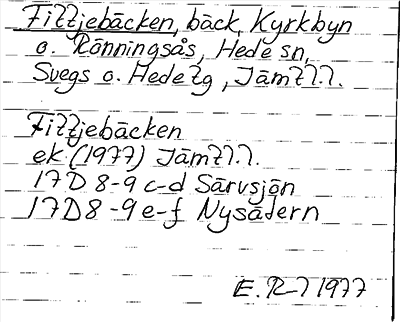 Fittjebäcken, bäck, Kyrkbyn
o. Rönningsås, Hede sn,
Svegs o. Hede tg, Jämtl.l.
Fittjebäcken
ek (1977) Jämtl.l.
17D 8-9 c-d Särvsjön
17D 8-9 e-f Nysätern
1977